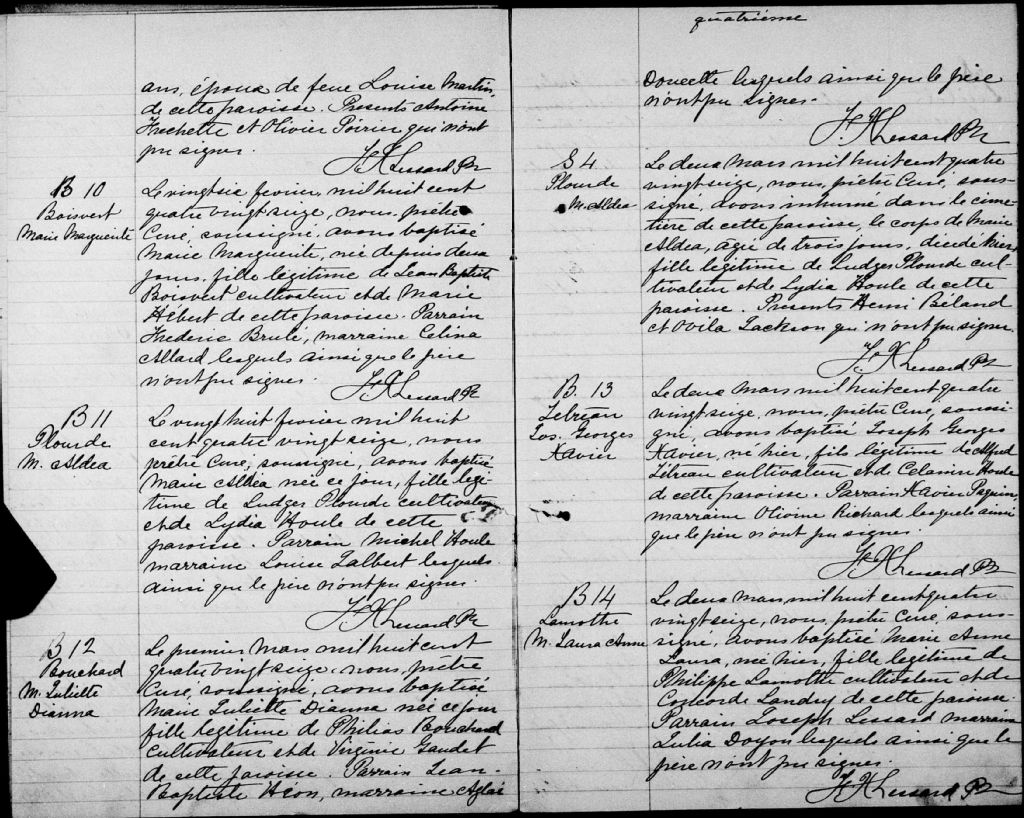 ans, époux de feue Louise Martin,
de cette paroisse. Presents Antoine
Frechette et Olivier Poirier qui n'ont
pu signer.
J. H. Lessard Ptr
B 10
Boisvert
Marie Marguerite
Le vingt six fevrier, mil huit cent
quatre vingt seize, nous, prêtre
Curé, soussigné, avons baptisé
Marie Marguerite, née depuis deux
jours, fille légitime de Jean Baptiste
Boisvert cultivateur et de Marie
Hébert de cette paroisse. Parrain
Frederic Brulé, marraine Celina
Allard lesquels ainsi que le père
n'ont pu signer.
J. H. Lessard Ptr
B 11
Plourde
M. Aldea
Le vingt huit fevrier mil huit
cent quatre vingt seize, nous
prêtre Curé, soussigné, avons baptisé
Marie Aldea née ce jour, fille legi-
time de Ludger Plourde cultivateur
et de Lydia Houle de cette
paroisse. Parrain Michel Houle
marraine Louise Talbert lesquels
ainsi que le père n'ont pu signer.
J. H. Lessard Ptr
B 12
Bouchard
M. Juliette
Dianna
Le premier Mars mil huit cent
quatre vingt seize, nous, prêtre
Curé, soussigné, avons baptisé
Marie Juliette Dianna née ce jour
fille légitime de Philias Bouchard
cultivateur et de Virginie Gaudet
de cette paroisse. Parrain Jean-
Baptiste Héon, marraine Aglaé
quatrième
Doucette lesquels ainsi que le père
n'ont pu signer.
J. H. Lessard Ptr
S 4
Plourde
M. Aldea
Le deux Mars mil huit cent quatre
vingt seize, nous, prêtre Curé, sous-
signé, avons inhumé dans le cime-
tière de cette paroisse, le corps de Marie
Aldea, agée de trois jours, décédé hier,
fille légitime de Ludger Plourde cul-
tivateur et de Lydia Houle de cette
paroisse. Presents Henri Béland
et Ovila Jackson qui n'ont pu signer.
J. H. Lessard Ptr
B. 13
Lebrean
Jos. Georges
Xavier
Le deux Mars mil huit cent quatre
vingt seize, nous, prêtre Curé, soussi-
gné, avons baptisé Joseph Georges
Xavier, né hier, fils légitime de Alfred
cultivateur et de Houle
de cette paroisse. Parrain Xavier Paquin,
marraine Olivine Richard lesquels ainsi
que le père n'ont pu signer
J. H. Lessard Ptr
B 14
Lamothe
M. Laura Anne
Le deux Mars, mil huit cent quatre
vingt seize, nous, prêtre Curé, sous-
signé, avons baptisé Marie Anne
Laura, née hier, fille légitime de
Philippe Lamothe cultivateur et de
Concorde Landry de cette paroisse.
Parrain Joseph Lessard marraine
Julia Doyon lesquels ainsi que le
père n'ont pu signer.
J. H. Lessard Ptr